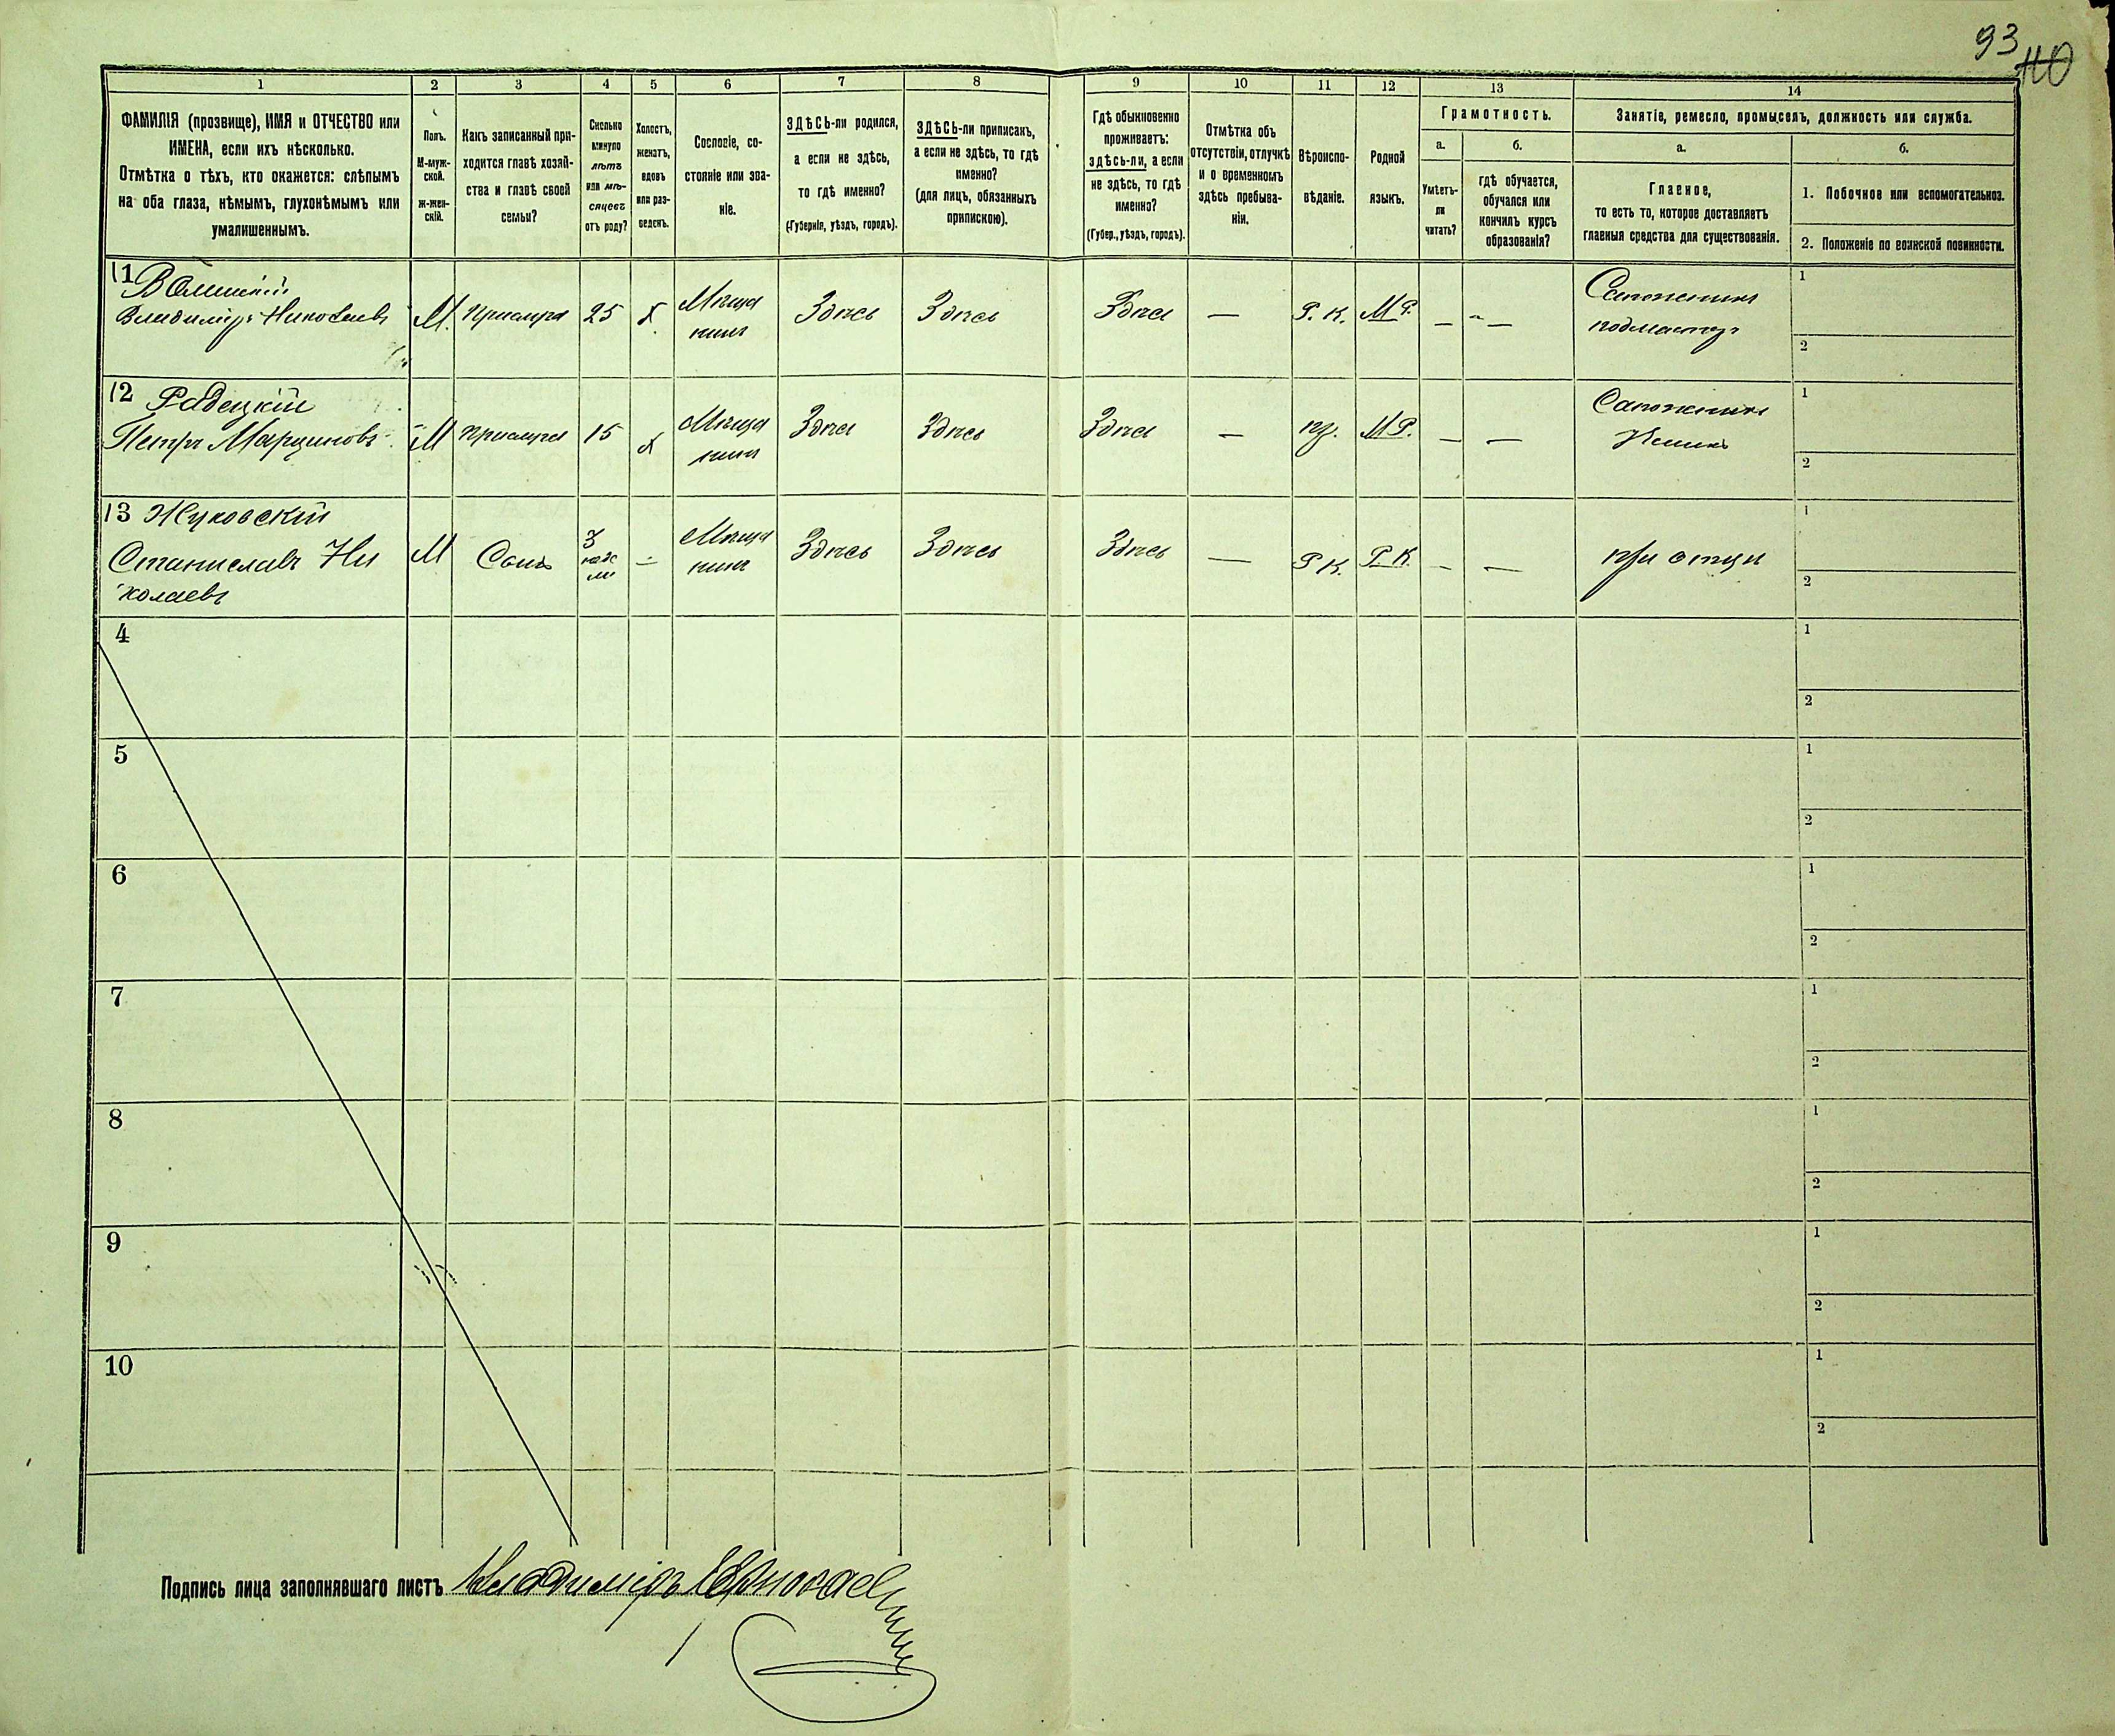 93
110
1
2
3
4
5
6
7
8
9
10
11
12
13
14
ФАМИЛІЯ (прозвище), ИМЯ и ОТЧЕСТВО или
ИМЕНА, если ихъ нѣсколько.
Отмѣтка о тѣхъ, кто окажется: слѣпымъ
на оба глаза, нѣмымъ, глухонѣмымъ или
умалишеннымъ.
Полъ.
М-муж-
ской.
ж-жен-
скій.
Какъ записанный при-
ходится главѣ хозяй-
ства и главѣ своей
семьи?
Сколько
минуло
лѣтъ
или мѣ-
сяцевъ
отъ роду?
Холостъ,
женатъ,
вдовъ
или раз-
веденъ.
Сословіе, со-
стояніе или зва-
ніе.
ЗДѢСЬ-ли родился,
а если не здѣсь,
то гдѣ именно?
(Губернія, уѣздъ, городъ).
ЗДѢСЬ-ли приписанъ,
а если не здѣсь, то гдѣ
именно?
(для лицъ, обязанныхъ
припискою).
Гдѣ обыкновенно
проживаетъ:
здѣсь-ли, а если
не здѣсь, то гдѣ
именно?
(Губер., уѣздъ, городъ).
Отмѣтка объ
отсутствіи, отлучкѣ
и о временномъ
здѣсь пребыва-
ніи.
Вѣроиспо-
вѣданіе.
Родной
языкъ.
Грамотность.
а.
Умѣетъ-
ли
читать?
б.
гдѣ обучается,
обучался или
кончилъ курсъ
образованія?
Занятіе, ремесло, промыселъ, должность или служба.
а.
Главное,
то есть то, которое доставляетъ
главныя средства для существованія.
б.
1. Побочное или вспомогательное.
2. Положеніе по воинской повинности.
11
Владиміръ Николаевъ
М.
25
Х.
Мѣща
нинъ
Здѣсь
Здѣсь
Здѣсь
—
Р. К.
М Р.
—
—
Сапожникъ
подмастер
1
2
12 Радецкій
Петръ Марциновъ
М
15
Х
Мѣща
нинъ
Здѣсь
Здѣсь
Здѣсь
—
М Р.
—
—
Сапожникъ
1
2
13 Жуковскій
Станиславъ Ни
колаевъ
М
Сынъ
3
—
Мѣща
нинъ
Здѣсь
Здѣсь
Здѣсь
—
Р К.
Р К
—
—
при отцѣ
1
2
4
1
2
5
1
2
6
1
2
7
1
2
8
1
2
9
1
2
10
1
2
Подпись лица заполнявшаго листъ Владиміръ